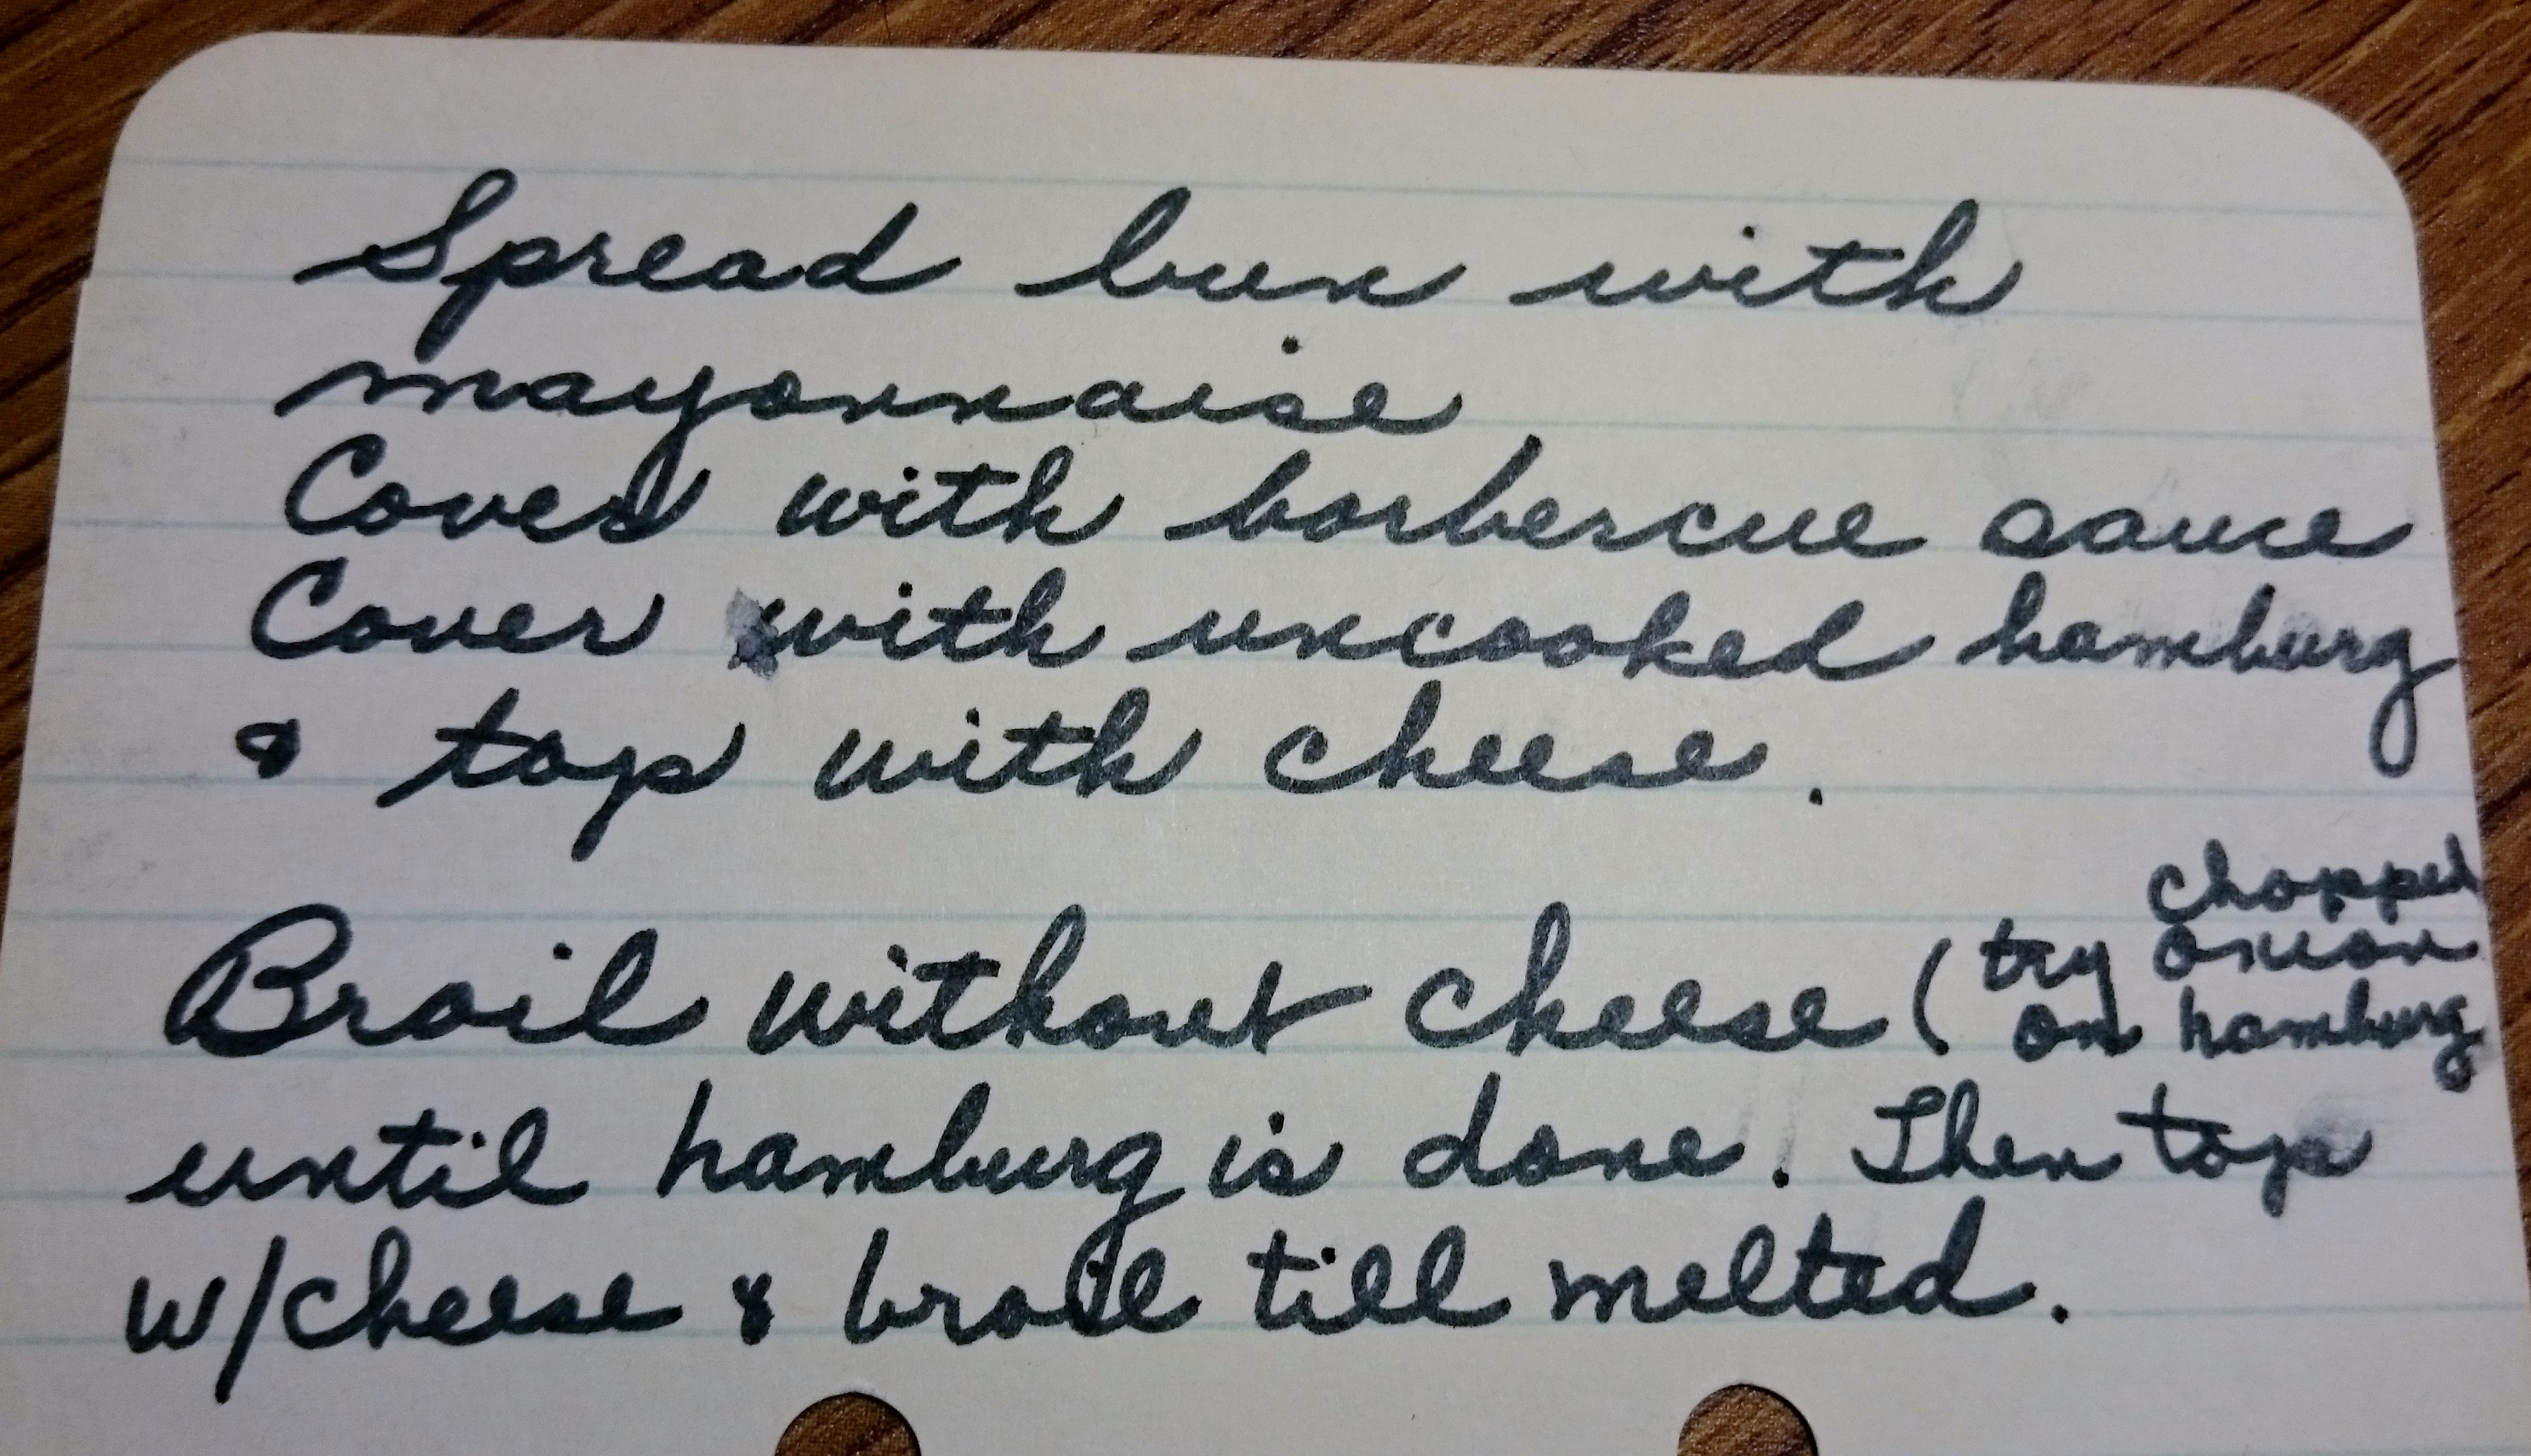 Spread bun with
mayonnaise
Cover with barbercue sauce
Cover with uncooked hamburg
& top with cheese.
Broil without cheese (try chopped onion on hamburg
until hamburg is done. Then top
w/cheese & broil till melted.